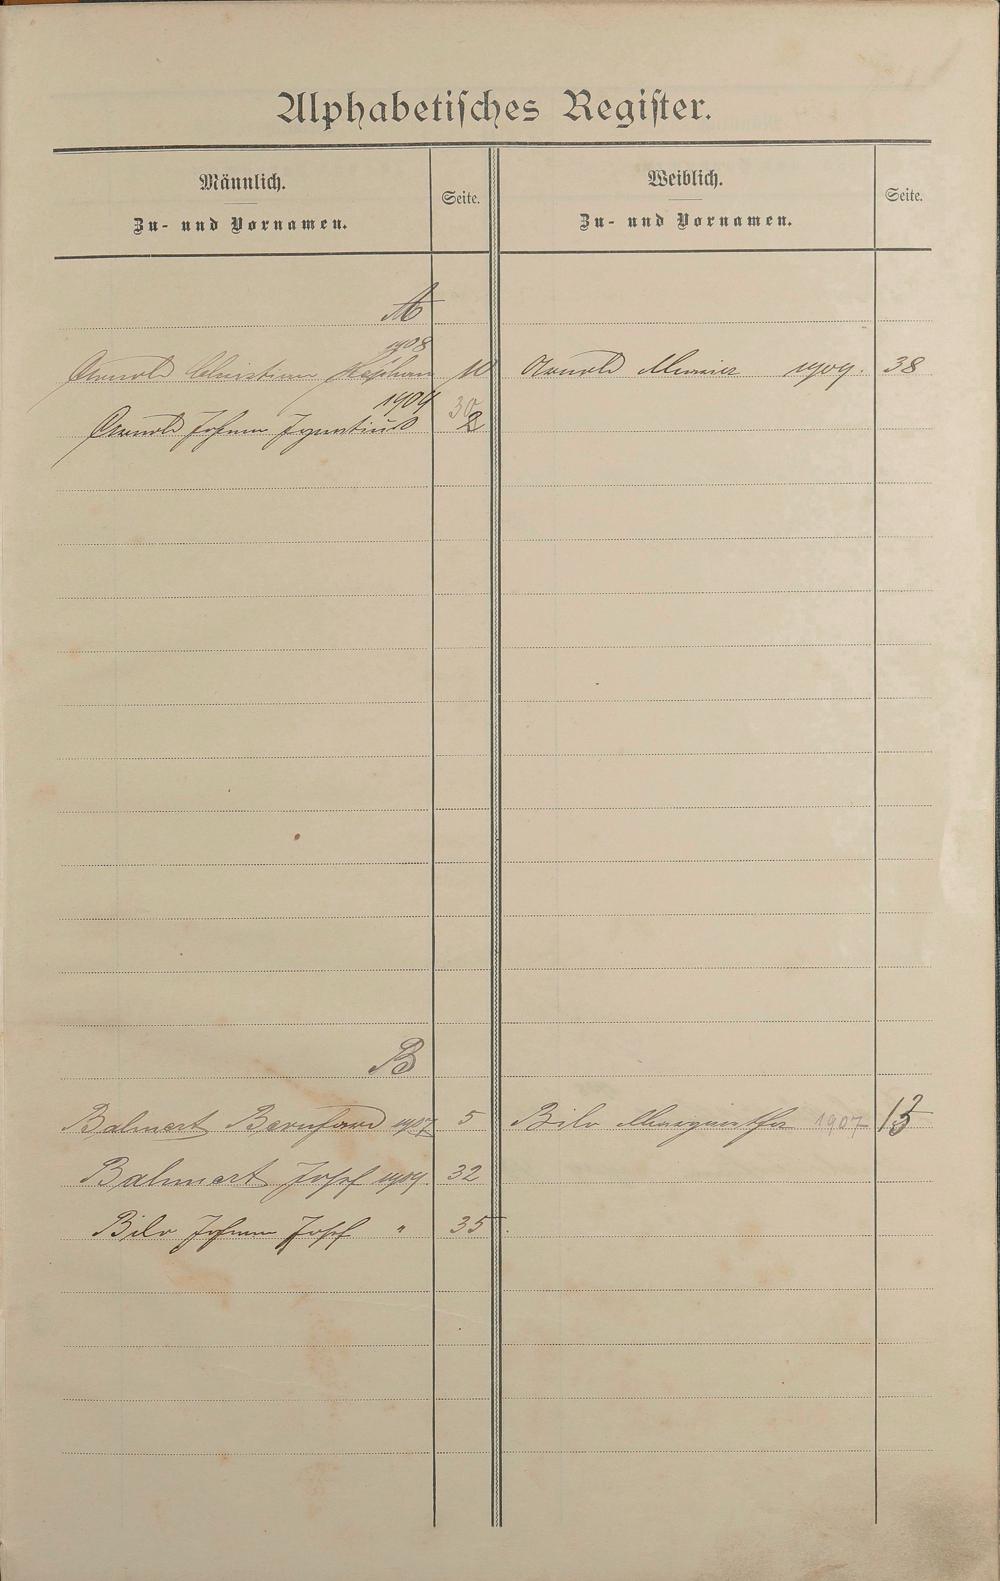 Alphabetisches Register.
Männlich. Seite. Weiblich. Seite.
Zu- und Vornamen. Zu- und Vornamen.
A
1908
Arnold Christian Stephan 10 Arnold Maria 1909. 38
1909
Arnold Johann Ignatius 30 2
B
Balmert Bernhard 1907 5 Bilo Margaretha 1907 13
Balmert Josef 1909. 32
Bilo Johann Josef " 35